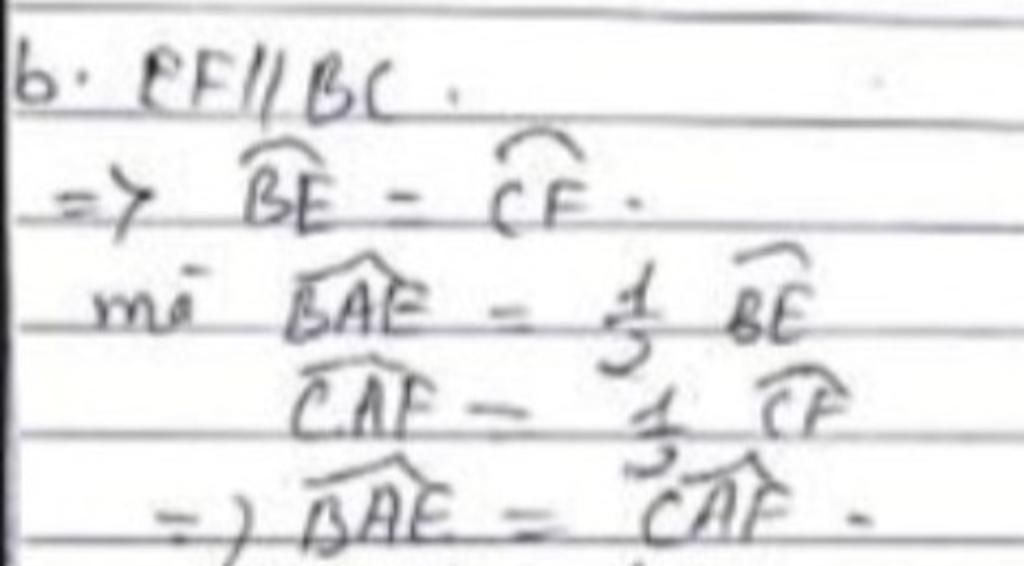 b. EF // BC.
=> \overset{\frown}{BE} = \overset{\frown}{CF}.
mà \widehat{BAE} = \frac{1}{2} \overset{\frown}{BE}
\widehat{CAF} = \frac{1}{2} \overset{\frown}{CF}
=> \widehat{BAE} = \widehat{CAF}.